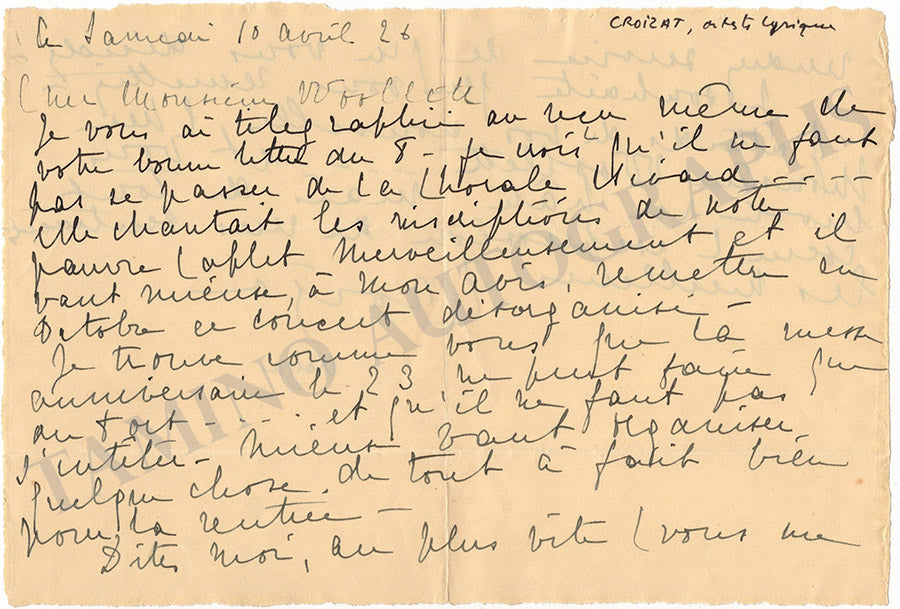 CROIZAT, artiste lyrique
Le Samedi 10 avril 26
Cher Monsieur Woollett
Je vous ai télégraphié au reçu même de
votre bonne lettre du 8 - Je crois qu'il ne faut
pas se passer de la Chorale
elle chantait les inscriptions de notre
pauvre Caplet merveilleusement et il
vaut mieux, à mon avis, remettre en
Octobre ce concert désorganisé -
Je trouve comme vous que la messe
anniversaire le 23 ne peut faire que
du tort - . . . et qu'il ne faut pas
s'entêter - mieux vaut organiser
quelque chose de tout à fait bien
pour la rentrée -
Dites moi, au plus vite (vous me
TAMINO AUTOGRAPHS